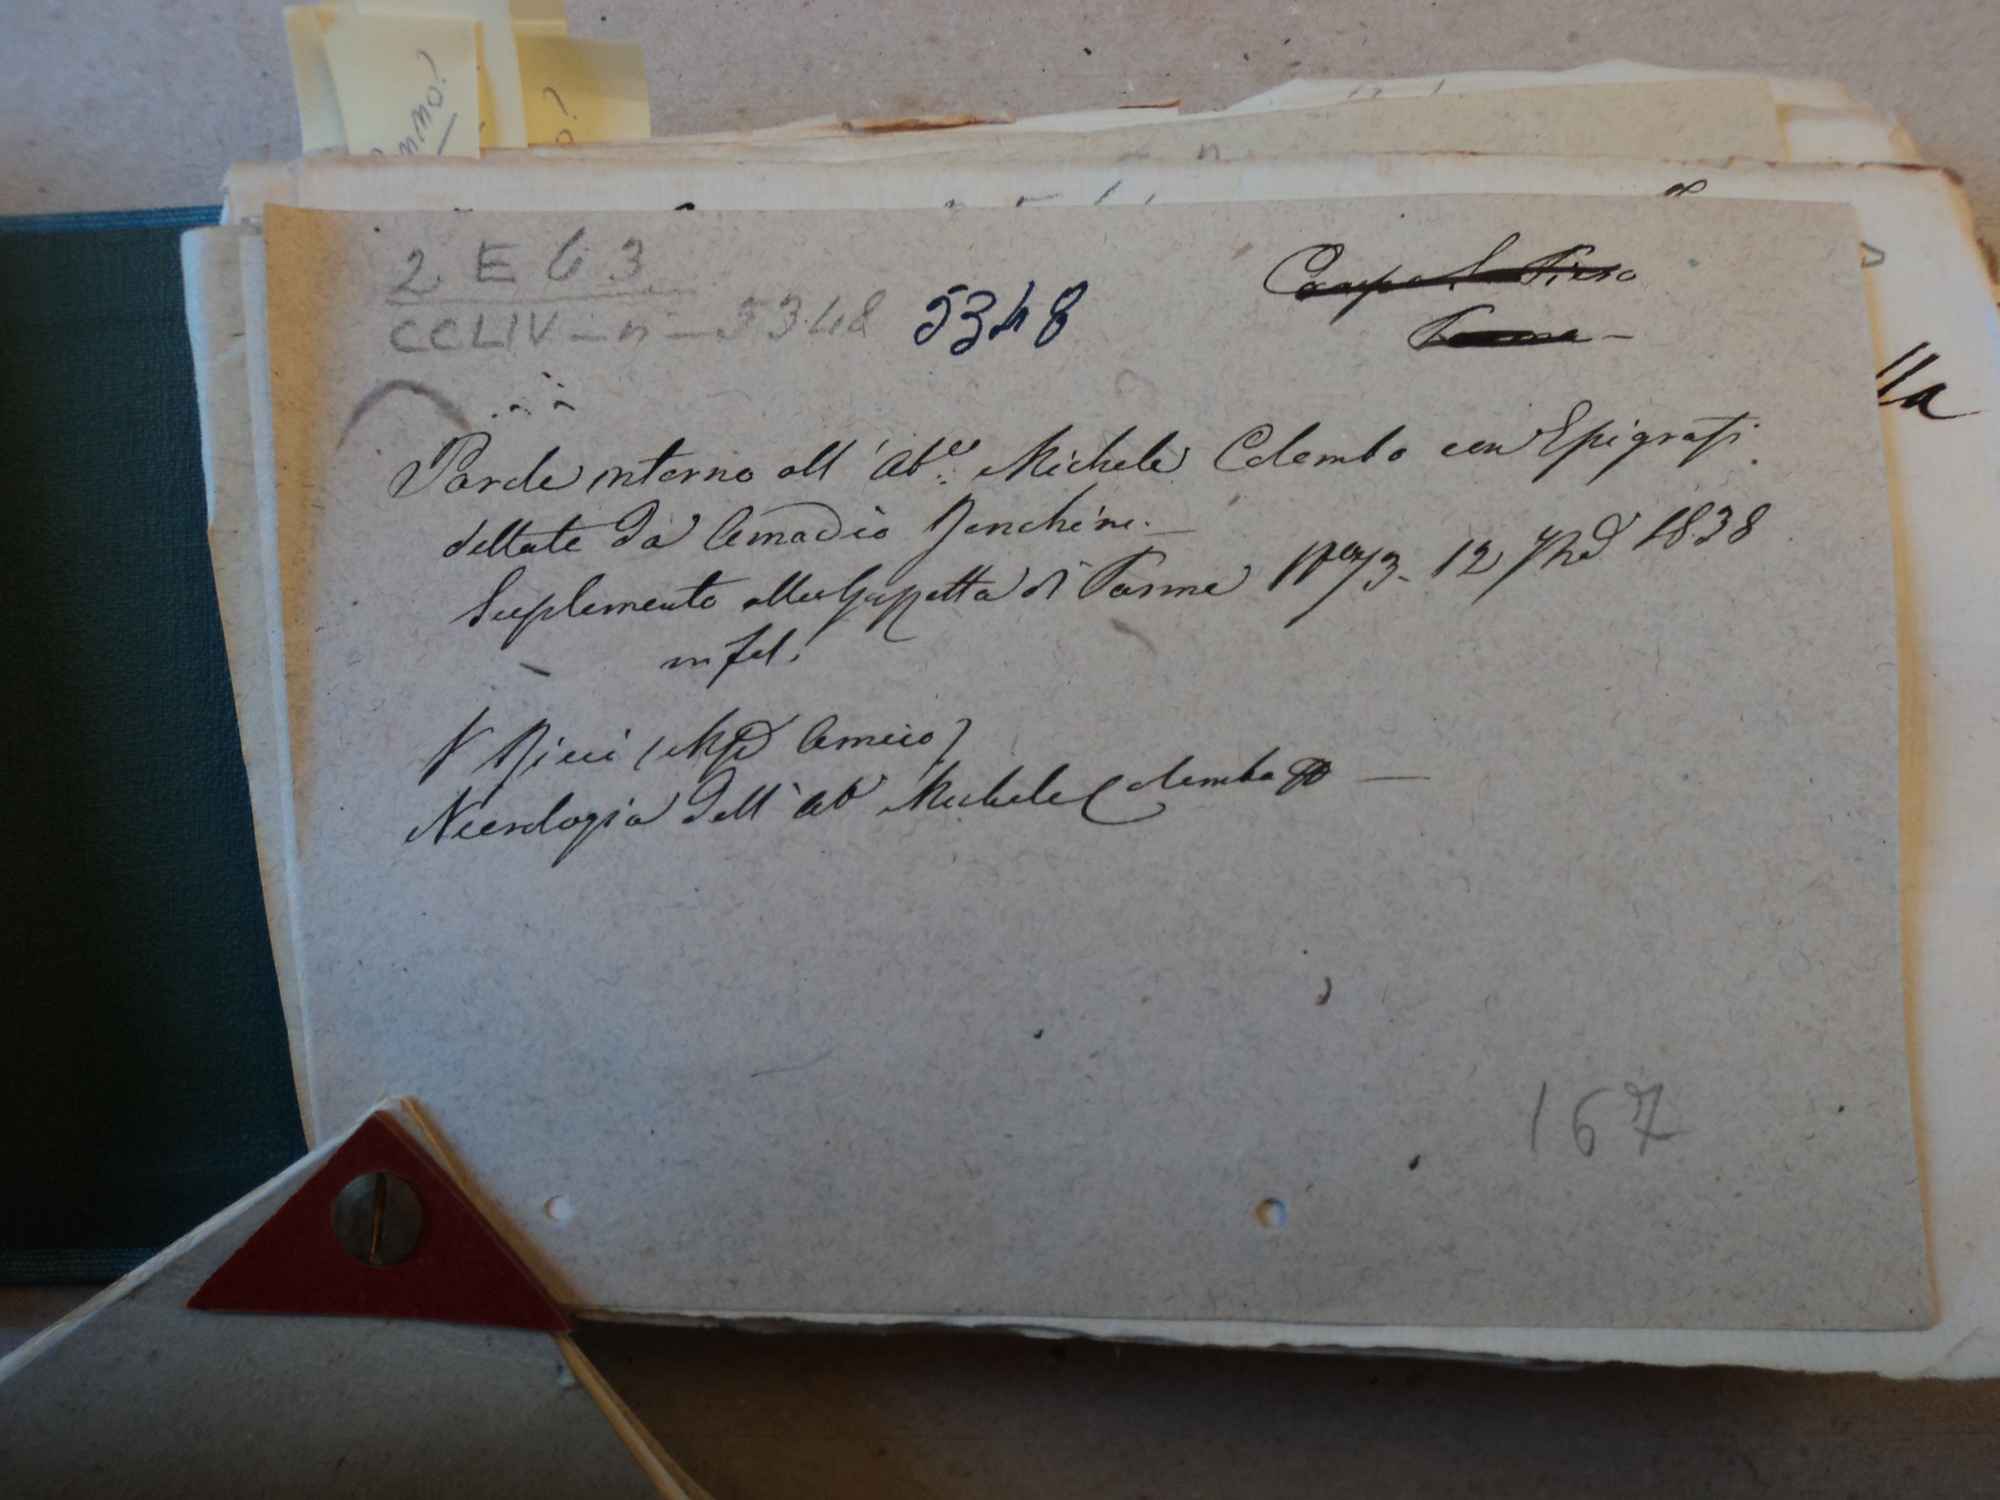 nno?
o?
2 E 6 3
CCLIV - n - 5348 5348
Campo S. Piero
Parma -
lla
Parole intorno all' Ab.e Michele Colombo con Epigrafi
dettate da Amadio Ronchini. -
Suplemento alla Gazzetta di Parma N° 73. 12 7bre 1838
in fol.
V Ricci (M Amico)
Necrologia dell' ab Michele Colombo -
167